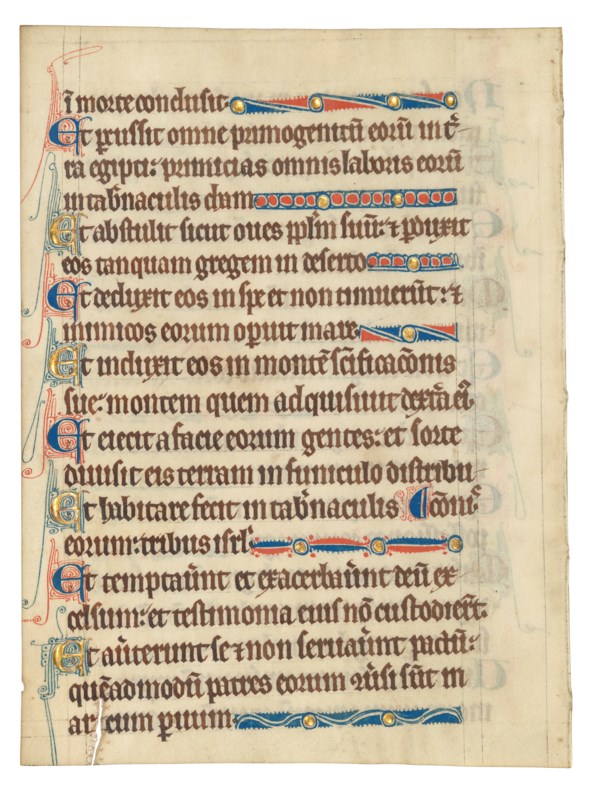 ī morte conclusit
Et ꝑcussit omne primogenitū eorū in t̄r
ra egipti: primicias omnis laboris eorū
in tab̄naculis cham
Et abstulit sicut oues ppl̄m suū: ⁊ ꝑduxit
eos tanquam gregem in deserto
Et deduxit eos in spe et non timuerūt: ⁊
inimicos eorum oꝑuit mare
Et induxit eos in montē sc̄ificac̄onis
sue: montem quem adquisiuit dext̄a eī
Et eiecit a facie eorum gentes: et sorte
diuisit eis terram in funiculo distribu
Et habitare fecit in tab̄naculis ⸿c̄onis
eorum: tribus isrl̄
Et temptauer̄nt et exacerbauer̄nt deū ex
celsum: et testimonia eius nō custodier̄t:
Et auerterunt se ⁊ non seruauer̄nt pactū:
quēadmodū patres eorum ūsi sūt in
arcum prauum